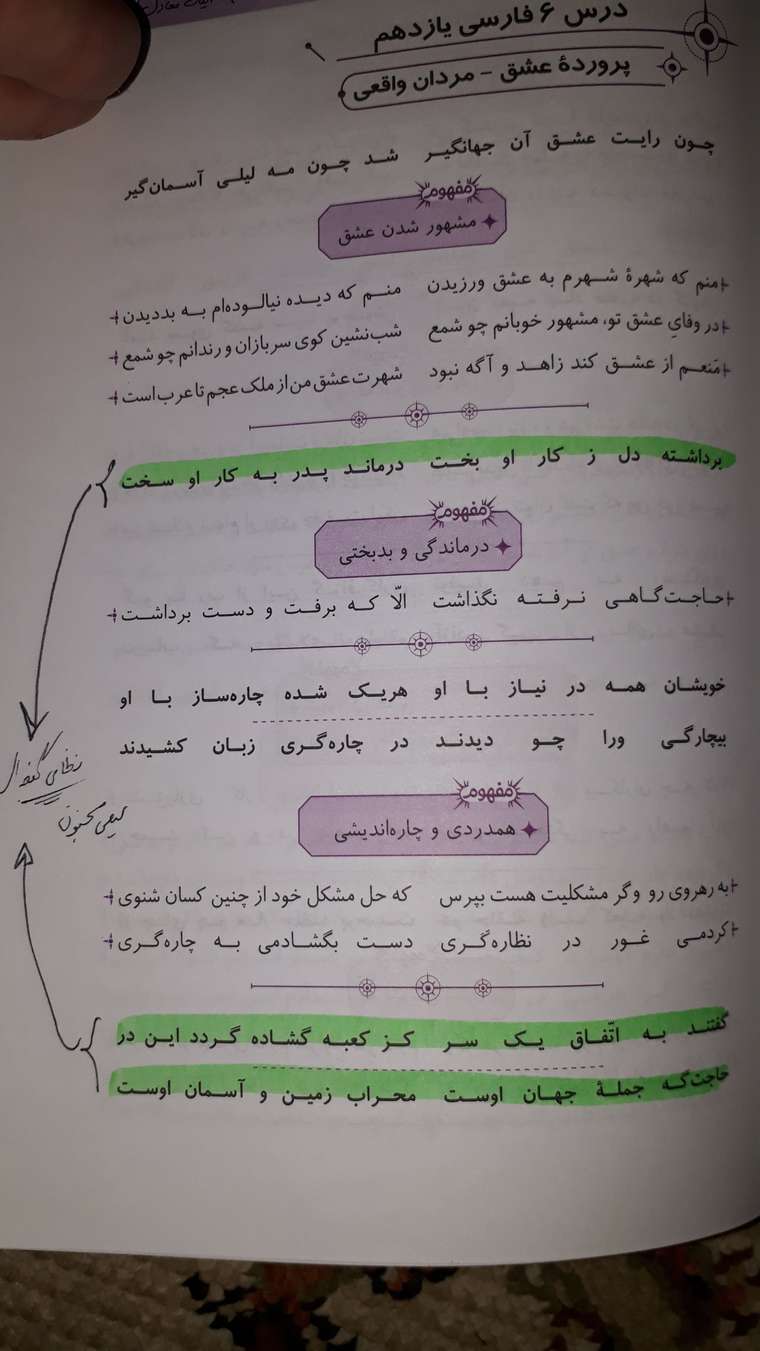 درس ۶ فارسی یازدهم
پروردهٔ عشق - مردان واقعی
چون رایت عشق آن جهانگیر شد چون مه لیلی آسمان‌گیر
مفهوم
مشهور شدن عشق
منم که شهرهٔ شهرم به عشق ورزیدن منم که دیده نیالوده‌ام به بددیدن
در وفایِ عشق تو، مشهور خوبانم چو شمع شب‌نشین کوی سربازان و رندانم چو شمع
مَنعم از عشق کند زاهد و آگه نبود شهرت عشق من از ملک عجم تا عرب است
برداشته دل ز کار او بخت درماند پدر به کار او سخت
مفهوم
درماندگی و بدبختی
حاجت‌گاهی نرفته نگذاشت الّا که برفت و دست برداشت
خویشان همه در نیاز با او هریک شده چاره‌ساز با او
بیچارگی ورا چو دیدند در چاره‌گری زبان کشیدند
نظامی گنجوی
لیلی مجنون
مفهوم
همدردی و چاره‌اندیشی
به رهروی رو وگر مشکلیت هست بپرس که حل مشکل خود از چنین کسان شنوی
کردمی غور در نظاره‌گری دست بگشادمی به چاره‌گری
گفتند به اتّفاق یک سر کز کعبه گشاده گردد این در
حاجت‌گه جملهٔ جهان اوست محراب زمین و آسمان اوست